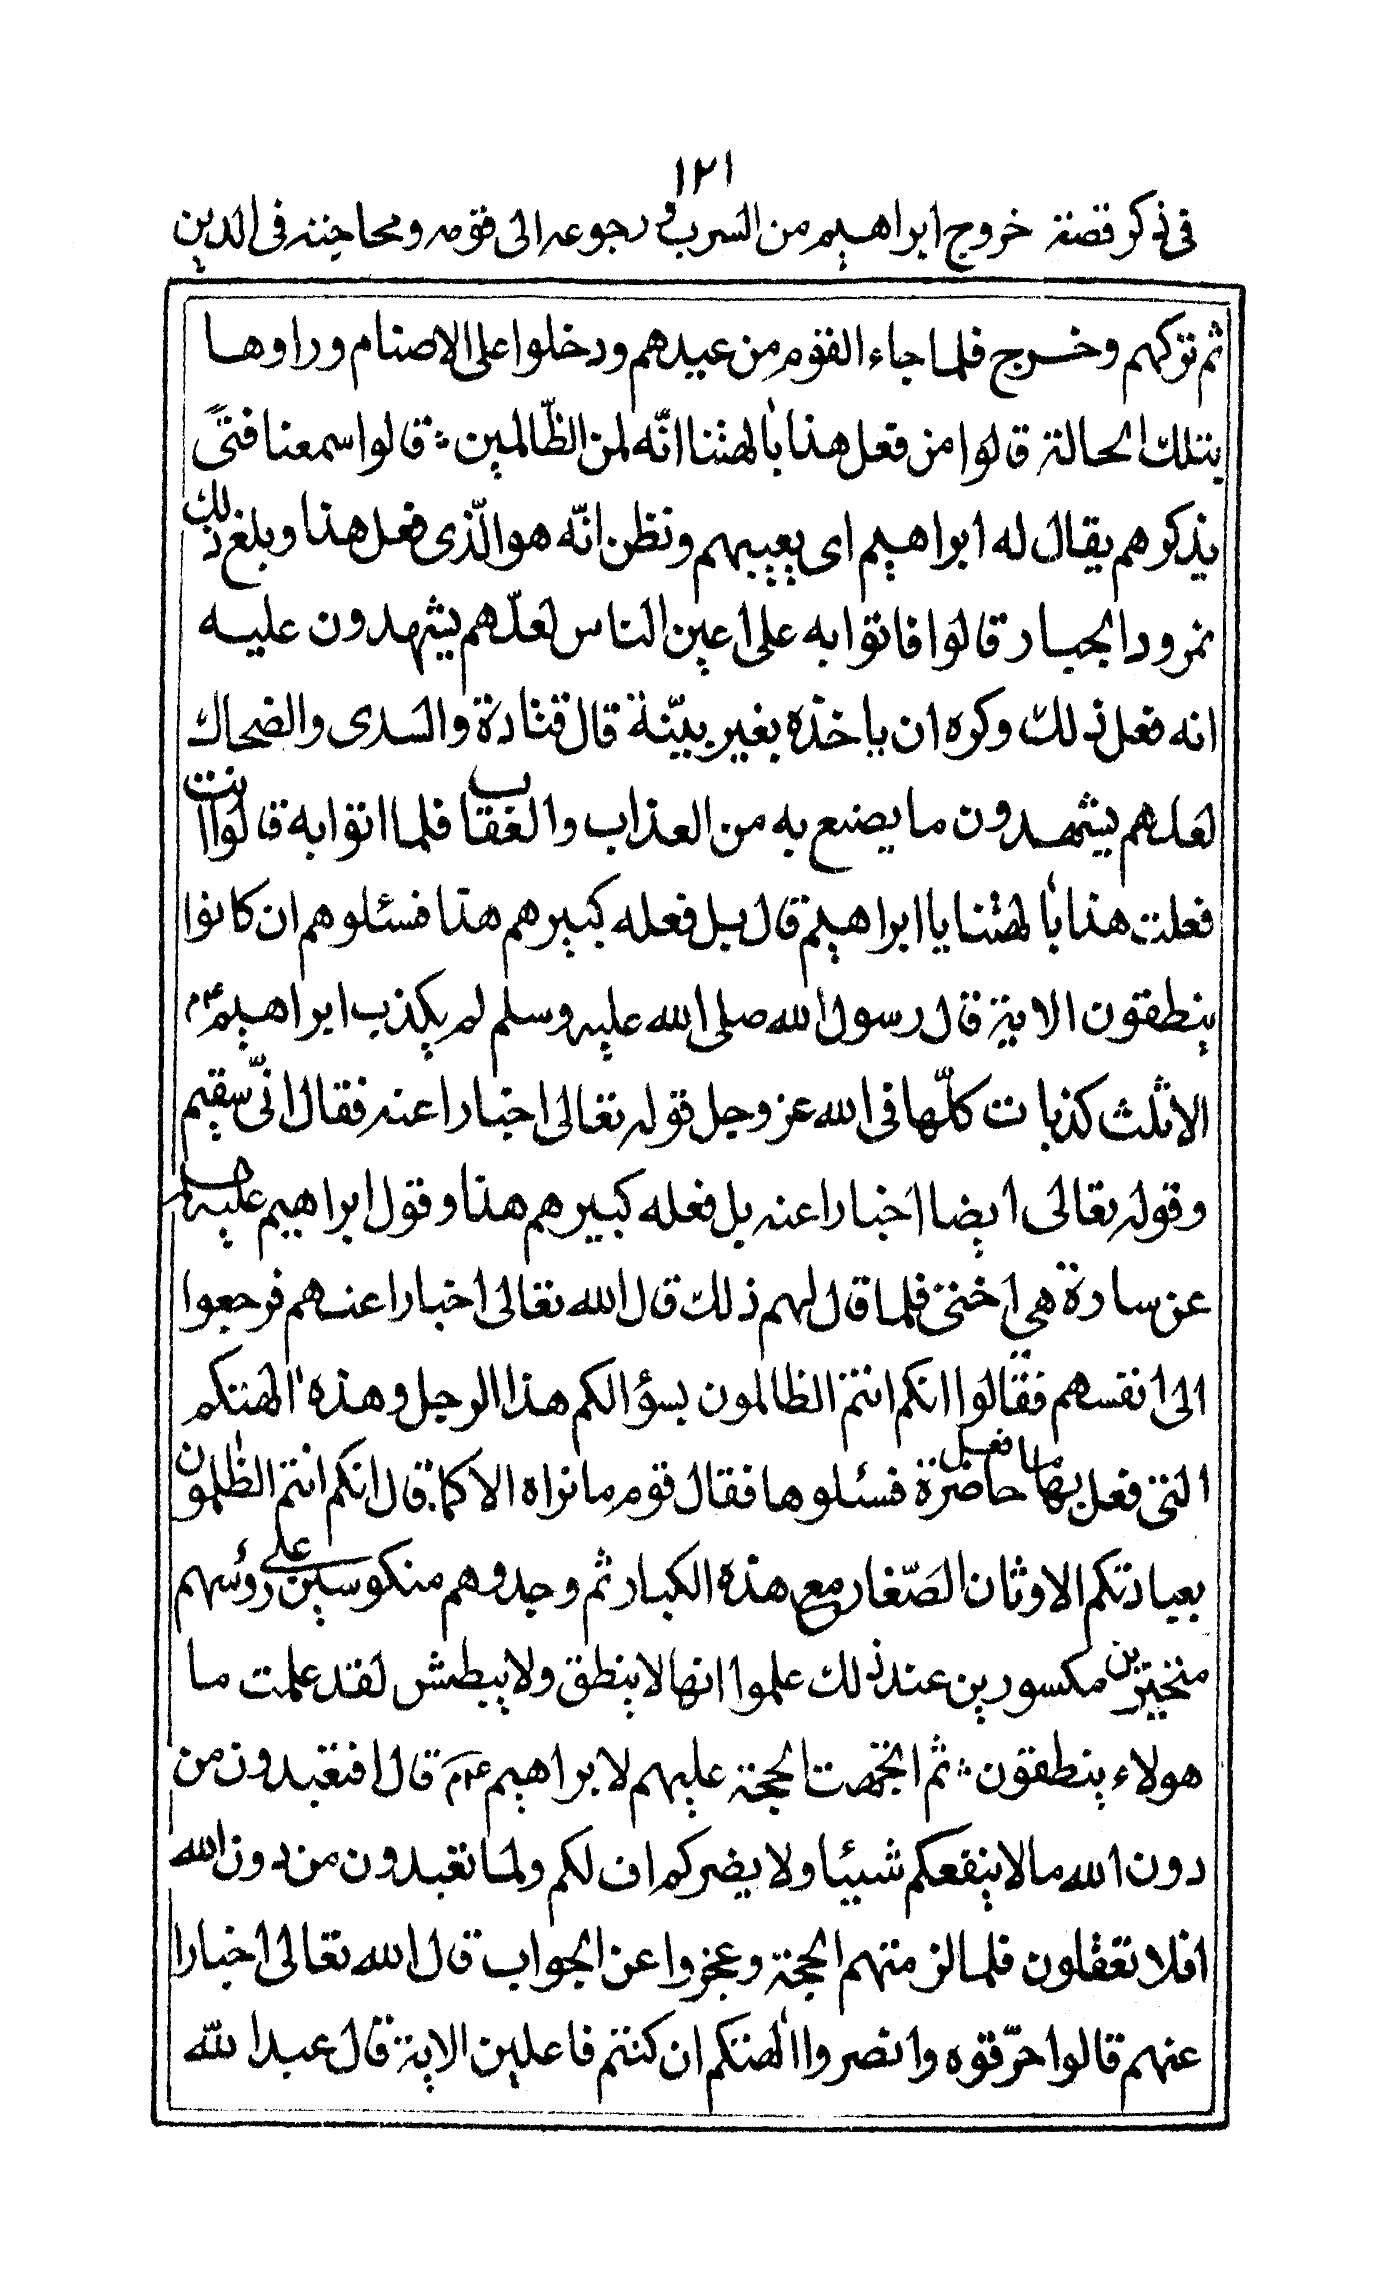 ١٢١
فى ذكر قصة خروج ابراهيم من السرب و رجوعه الى قومه و محاجته فى الدين
ثم تركهم وخرج فلما جاء القوم من عيدهم ودخلوا على الاصنام وراوها
بتلك الحالة قالوا من فعل هذا بالهتنا انّه لمن الظّالمين قالوا سمعنا فتىً
يذكرهم يقال له ابراهيم اى يعيبهم ونظن انّه هو الّذى فعل هذا وبلغ ذلك
نمرود الجبار قالوا فاتوا به على اعين الناس لعلّهم يشهدون عليه
انه فعل ذلك وكره ان ياخذه بغير بيّنة قال قتادة والسدى والضحاك
لعلهم يشهدون ما يصنع به من العذاب والعقاب فلما اتوا به قالوا اانت
فعلت هذا بالهتنا يا ابراهيم قال بل فعله كبيرهم هذا فسئلوهم ان كانوا
ينطقون الاية قال رسول الله صلى الله عليه وسلم لم يكذب ابراهيم عم
الا ثلث كذبات كلّها فى الله عز وجل قوله تعالى اخبارا عنه فقال انّى سقيم
وقوله تعالى ايضا اخبارا عنه بل فعله كبيرهم هذا وقول ابراهيم عليه
عن سارة هى اختى فلما قال لهم ذلك قال الله تعالى اخبارا عنهم فرجعوا
الى انفسهم فقالوا انكم انتم الظالمون بسؤالكم هذا الرجل وهذه الهتكم
التى فعل بها ما فعل حاضرة فسئلوها فقال قوم ما نراه الا كما قال انكم انتم الظلمون
بعبادتكم الاوثان الصّغار مع هذه الكبار ثم وجدوهم منكوسين على رؤسهم
متحيرين مكسورين عند ذلك علموا انها لا ينطق ولا يبطش لقد علمت ما
هولاء ينطقون ثم اتجهت الحجة عليهم لابراهيم عم قال افتعبدون من
دون الله ما لا ينفعكم شيئا ولا يضركم اف لكم ولما تعبدون من دون الله
افلا تعقلون فلما لزمتهم الحجة وعجزوا عن الجواب قال الله تعالى اخبارا
عنهم قالوا حرّقوه وانصروا الهتكم ان كنتم فاعلين الاية قال عبد الله